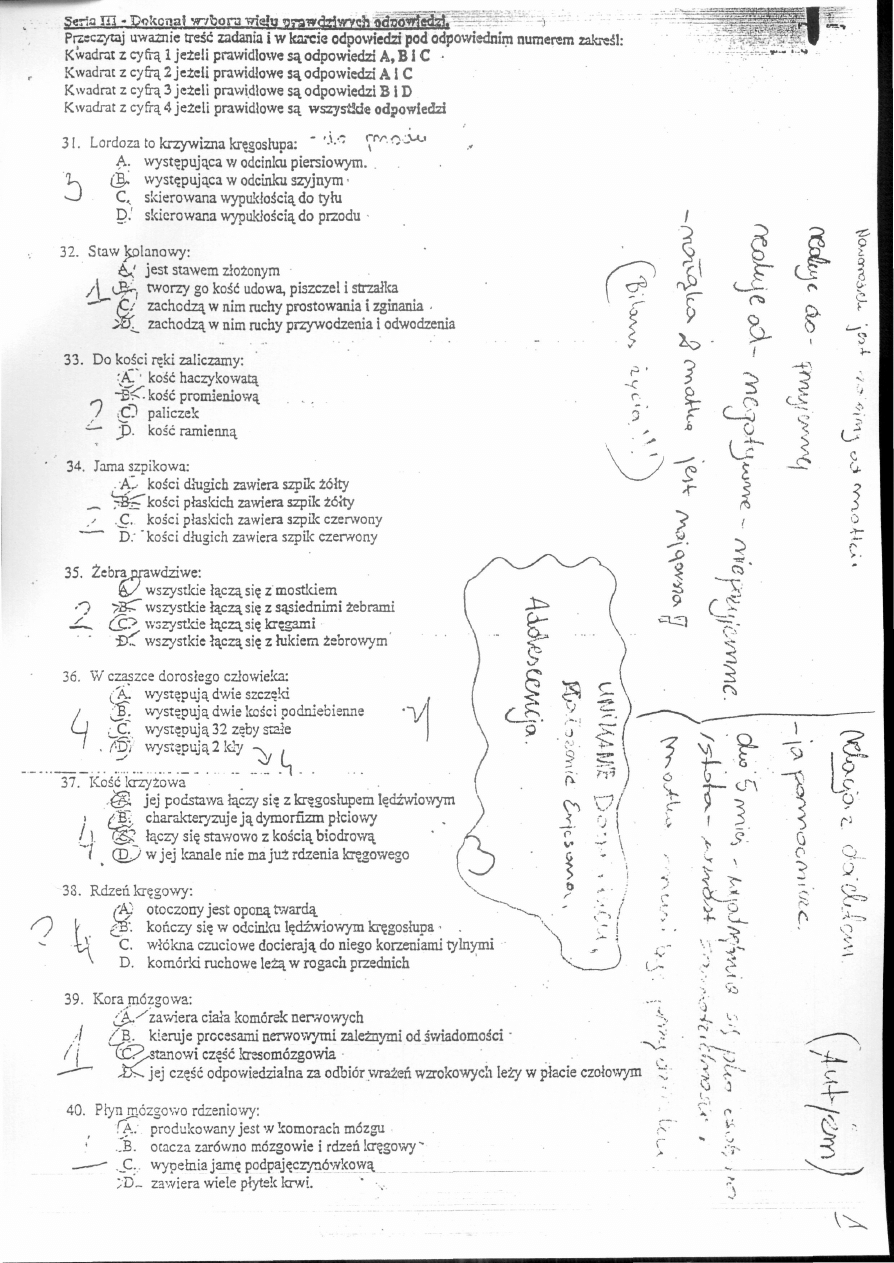 Seria III - Dokonaj wyboru wielu prawdziwych odpowiedzi.
Przeczytaj uważnie treść zadania i w karcie odpowiedzi pod odpowiednim numerem zakreśl:
Kwadrat z cyfrą 1 jeżeli prawidłowe są odpowiedzi A, B i C
Kwadrat z cyfrą 2 jeżeli prawidłowe są odpowiedzi A i C
Kwadrat z cyfrą 3 jeżeli prawidłowe są odpowiedzi B i D
Kwadrat z cyfrą 4 jeżeli prawidłowe są wszystkie odpowiedzi
31. Lordoza to krzywizna kręgosłupa:
A. występująca w odcinku piersiowym.
3 B. występująca w odcinku szyjnym
C. skierowana wypukłością do tyłu
D. skierowana wypukłością do przodu
32. Staw kolanowy:
A. jest stawem złożonym
1 B. tworzy go kość udowa, piszczel i strzałka
C. zachodzą w nim ruchy prostowania i zginania
D. zachodzą w nim ruchy przywodzenia i odwodzenia
33. Do kości ręki zaliczamy:
A. kość haczykowatą
B. kość promieniową
2 C. paliczek
D. kość ramienną
34. Jama szpikowa:
A. kości długich zawiera szpik żółty
B. kości płaskich zawiera szpik żółty
C. kości płaskich zawiera szpik czerwony
D. kości długich zawiera szpik czerwony
35. Żebra prawdziwe:
A. wszystkie łączą się z mostkiem
2 B. wszystkie łączą się z sąsiednimi żebrami
C. wszystkie łączą się kręgami
D. wszystkie łączą się z łukiem żebrowym
36. W czaszce dorosłego człowieka:
A. występują dwie szczęki
B. występują dwie kości podniebienne
4 C. występują 32 zęby stałe
D. występują 2 kły 4
37. Kość krzyżowa
A. jej podstawa łączy się z kręgosłupem lędźwiowym
B. charakteryzuje ją dymorfizm płciowy
4 C. łączy się stawowo z kością biodrową
D. w jej kanale nie ma już rdzenia kręgowego
38. Rdzeń kręgowy:
A. otoczony jest oponą twardą
? 4 B. kończy się w odcinku lędźwiowym kręgosłupa
C. włókna czuciowe docierają do niego korzeniami tylnymi
D. komórki ruchowe leżą w rogach przednich
39. Kora mózgowa:
A. zawiera ciała komórek nerwowych
1 B. kieruje procesami nerwowymi zależnymi od świadomości
C. stanowi część kresomózgowia
D. jej część odpowiedzialna za odbiór wrażeń wzrokowych leży w płacie czołowym
40. Płyn mózgowo rdzeniowy:
A. produkowany jest w komorach mózgu
B. otacza zarówno mózgowie i rdzeń kręgowy
C. wypełnia jamę podpajęczynówkową
D. zawiera wiele płytek krwi.
jest od matki
reaguje do - przyjemnej
reaguje od - negatywne - nieprzyjemne.
- rozłąka z matką jest najgorsza
(Bilans życia !!!)
relacja z dzieckiem
(Autyzm)
matka musi być
UNIKANIE
Ericsona,
Adolescencja.
1